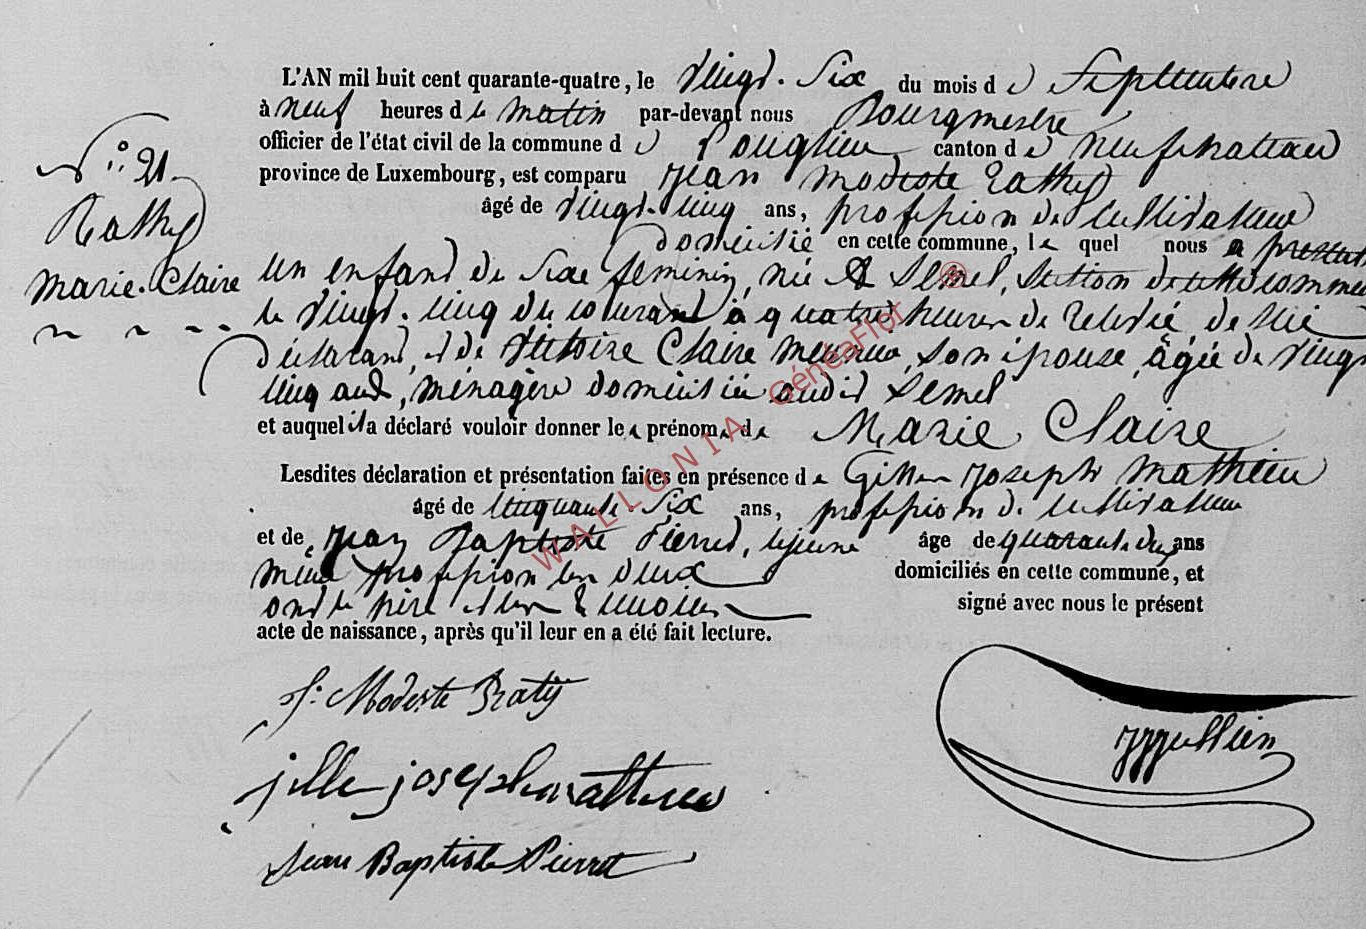 L'AN mil huit cent quarante-quatre, le vingt-six du mois de Septembre
à neuf heures du matin par-devant nous Bourgmestre
officier de l'état civil de la commune de Longlier canton de neufchateau
province de Luxembourg, est comparu Jean Modeste Rathy
âgé de vingt-cinq ans, profession de cultivateur
domicilié en cette commune, lequel nous a présenté
Un enfant de sexe feminin, née à Semel, section de cette commune
le vingt-cinq du courant à quatre heures de relevée, de lui
déclarant, et de Victoire Claire Meunier, son épouse, âgée de vingt
cinq ans, ménagère domiciliée audit Semel
et auquel il a déclaré vouloir donner les prénoms de Marie Claire
Lesdites déclaration et présentation faites en présence de Gilles Joseph Mathieu
âgé de cinquante-six ans, profession de cultivateur
et de Jean Baptiste Pierret, lejeune âge de quarante deux ans
même profession les deux domiciliés en cette commune, et
ont le père et les témoins signé avec nous le présent
acte de naissance, après qu'il leur en a été fait lecture.
N° 21
Rathy
Marie-Claire
J: Modeste Raty
jille joseph mattieu
Jean Baptiste Pierret
WALLONIA GénéaFlor ®